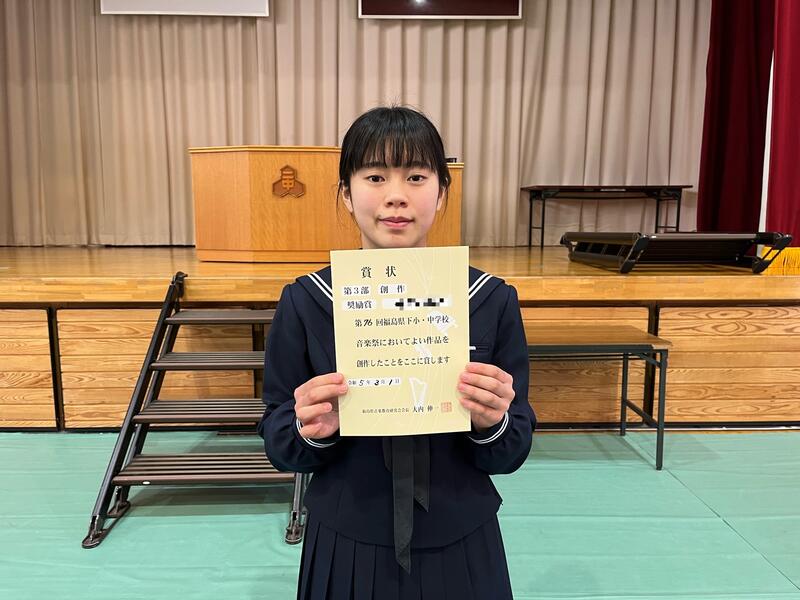 賞 状
第3部 創 作
奨励賞
第76回福島県下小・中学校
音楽祭においてよい作品を
創作したことをここに賞します
令和 5 年 3 月 1 日
福島県音楽教育研究会会長 大内 伸一